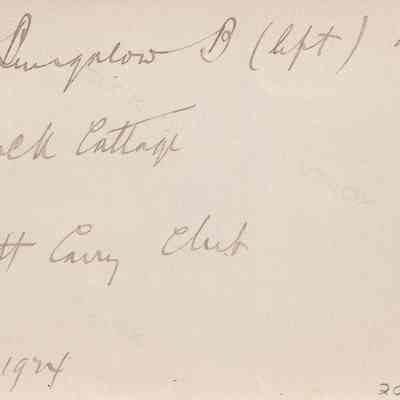 Bungalow B (left)
ock Cottage
tt Carry Club
1924
20